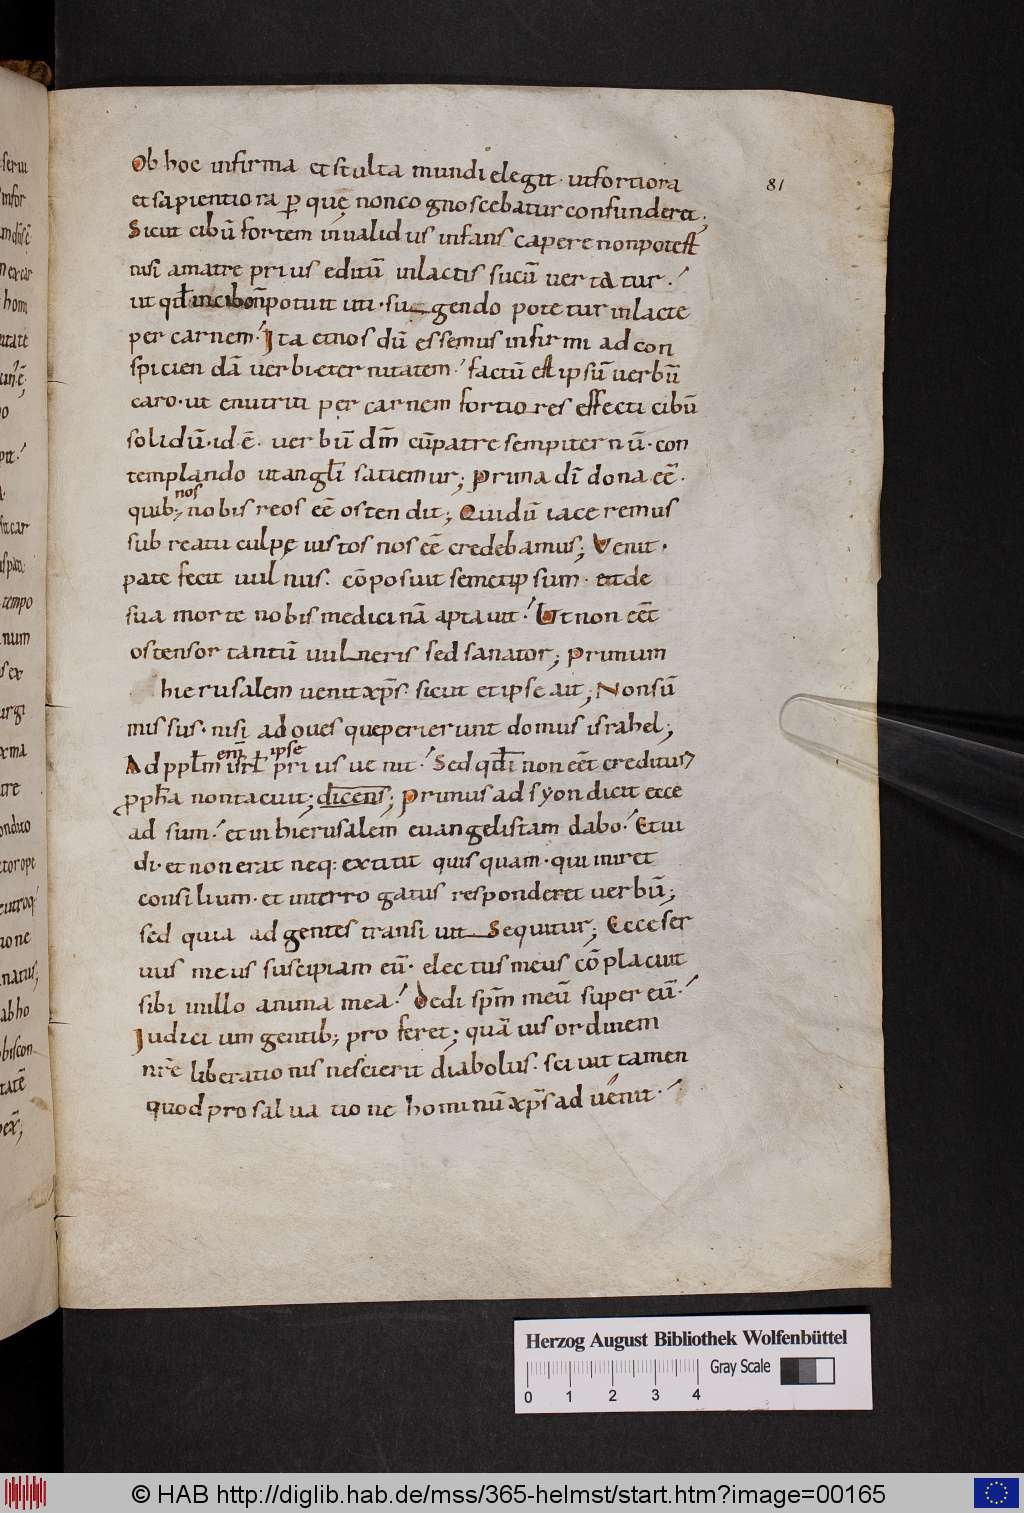 81
Ob hoc infirma et stulta mundi elegit · ut fortiora
et sapientiora p̲ quę non cognoscebatur confunderet;
Sicut cibū fortem invalidus infans capere non potest
nisi a matre prius editū in lactis sucū vertatur·
ut qđ in cibo n̄ potuit uti · sugendo potetur in lacte
per carnem· Ita et nos dū essemus infirmi ad con
spiciendā verbi eternitatem· factū est ipsū verbū
caro · ut enutriti per carnem fortiores effecti cibū
solidū · id ē · verbū dm̄ cū patre sempiternū · con
templando ut angli satiemur; Prima dī dona eē·
quib; nos
nobis reos eē ostendit; Qui dū iaceremus
sub reatu culpę iustos nos eē credebamus; Venit·
patefecit uulnus· cōposuit semetipsum· et de
sua morte nobis medicinā aptavit· Ut non eēt
ostensor tantū uulneris sed sanator; Primum
hierusalem uenit xp̄s· sicut et ipse ait; Non sū
missus · nisi ad oues que perierunt domus israhel;
Ad pplm̄ enī isrł ipse prius uenit· Sed qđ non eēt creditus
propħa non tacuit; dicens; Primus ad syon dicit ecce
ad sum· et in hierusalem euangelistam dabo· Et ui
di · et non erat neq: extitit quisquam · qui iniret
consilium · et interrogatus responderet verbū;
sed quia ad gentes transiuit Sequitur; Ecce ser
uus meus suscipiam eū· electus meus cōplacuit
sibi in illo anima mea· Dedi spm̄ meū super eū·
Iudicium gentib; proferet; quā uis ordinem
nr̄ę liberationis nescierit diabolus· sciuit tamen
quod pro saluatione hominū xp̄s aduenit·
Herzog August Bibliothek Wolfenbüttel
Gray Scale
0 1 2 3 4
© HAB http://diglib.hab.de/mss/365-helmst/start.htm?image=00165